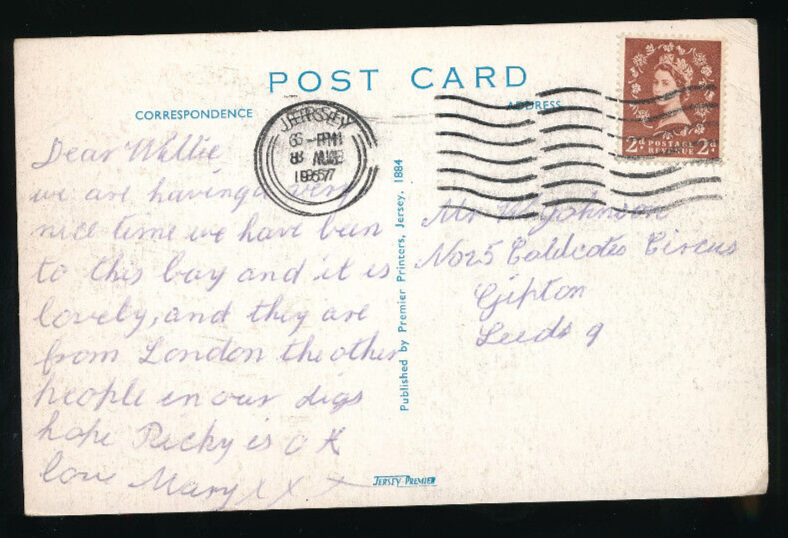 POST CARD
CORRESPONDENCE
ADDRESS
JERSEY
1957
2d POSTAGE REVENUE 2d
Dear Willie
we are having a very
nice time we have been
to this bay and it is
lovely, and they are
from London the other
people in our digs
hope Ricky is O K
love Mary x x x
Published by Premier Printers, Jersey, 1884
Mr W Johnson
No 25 Coldcotes Circus
Gipton
Leeds 9
JERSEY PREMIER